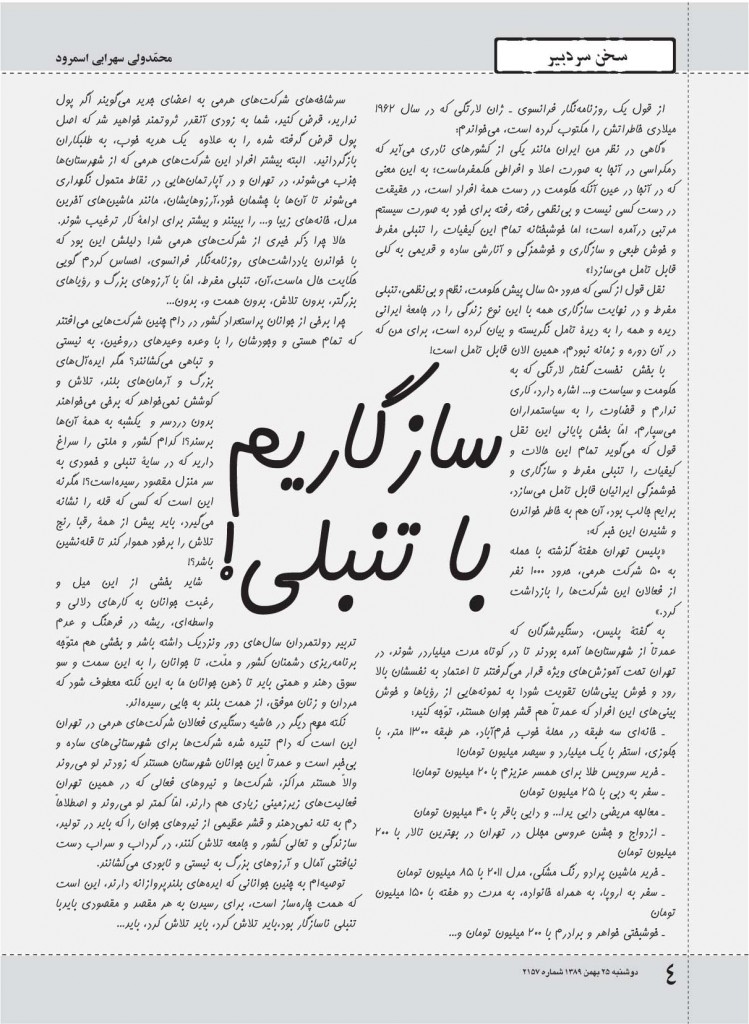 سخن سردبیر
محمّدولی سهرابی اسمرود
از قول یک روزنامه‌نگار فرانسوی ـ ژان لارتگی که در سال ۱۹۶۲
میلادی خاطراتش را مکتوب کرده است، می‌خوانیم:
«گاهی در نظر من ایران مانند یکی از کشورهای نادری می‌آید که
دمکراسی در آنجا به صورت اعلا و افراطی حکمفرماست؛ به این معنی
که در آنجا در عین آنکه حکومت در دست همهٔ افراد است، در حقیقت
در دست کسی نیست و بی‌نظمی رفته رفته برای خود به صورت سیستم
مرتبی درآمده است؛ اما خوشبختانه تمام این کیفیات را تنبلی مفرط
و خوش طبعی و سازگاری و خوشمزگی و آنارشی ساده و قدیمی به کلی
قابل تحمل می‌سازد!»
نقل قول از کسی که حدود ۵۰ سال پیش حکومت، نظم و بی‌نظمی، تنبلی
مفرط و در نهایت سازگاری همه با این نوع زندگی را در جامعهٔ ایرانی
دیده و همه را به دیدهٔ تحمل نگریسته و بیان کرده است، برای من که
در آن دوره و زمانه نبودم، همین الان قابل تحمل است!
با بخش نخست گفتار لارتگی که به
حکومت و سیاست و... اشاره دارد، کاری
ندارم و قضاوت را به سیاستمداران
می‌سپارم، امّا بخش پایانی این نقل
قول که می‌گوید تمام این حالات و
کیفیات را تنبلی مفرط و سازگاری و
خوشمزگی ایرانیان قابل تحمل می‌سازد،
برایم جالب بود، آن هم به خاطر خواندن
و شنیدن این خبر که:
«پلیس تهران هفتهٔ گذشته با حمله
به ۵۰ شرکت هرمی، حدود ۱۰۰۰ نفر
از فعالان این شرکت‌ها را بازداشت
کرد.»
به گفتهٔ پلیس، دستگیرشدگان که
عمدتاً از شهرستان‌ها آمده بودند تا در کوتاه مدت میلیاردر شوند، در
تهران تحت آموزش‌های ویژه قرار می‌گرفتند تا اعتماد به نفسشان بالا
رود و خوش بینی‌شان تقویت شود! به نمونه‌هایی از رؤیاها و خوش
بینی‌های این افراد که عمدتاً هم قشر جوان هستند، توجّه کنید:
ـ خانه‌ای سه طبقه در محلهٔ خوب خرم‌آباد، هر طبقه ۱۳۰۰ متر، با
جکوزی، استخر با یک میلیارد و سیصد میلیون تومان!
ـ خرید سرویس طلا برای همسر عزیزم با ۲۰ میلیون تومان!
ـ سفر به دبی با ۲۵ میلیون تومان
ـ معالجه مریضی دایی یدا... و دایی باقر با ۴۰ میلیون تومان
ـ ازدواج و جشن عروسی مجلل در تهران در بهترین تالار با ۲۰۰
میلیون تومان
ـ خرید ماشین پرادو رنگ مشکی، مدل ۲۰۱۱ با ۸۵ میلیون تومان
ـ سفر به اروپا، به همراه خانواده، به مدت دو هفته با ۱۵۰ میلیون
تومان
ـ خوشبختی خواهر و برادرم با ۲۰۰ میلیون تومان و...
سرشاخه‌های شرکت‌های هرمی به اعضای جدید می‌گویند اگر پول
ندارید، قرض کنید، شما به زودی آنقدر ثروتمند خواهید شد که اصل
پول قرض گرفته شده را به علاوه یک هدیه خوب، به طلبکاران
بازگردانید. البته بیشتر افراد این شرکت‌های هرمی که از شهرستان‌ها
جذب می‌شوند، در تهران و در آپارتمان‌هایی در نقاط متمول نگهداری
می‌شوند تا آن‌ها با چشمان خود،آرزوهایشان، مانند ماشین‌های آخرین
مدل، خانه‌های زیبا و... را ببینند و بیشتر برای ادامهٔ کار ترغیب شوند.
حالا چرا ذکر خیری از شرکت‌های هرمی شد؛ دلیلش این بود که
با خواندن یادداشت‌های روزنامه‌نگار فرانسوی، احساس کردم گویی
حکایت حال ماست،آن، تنبلی مفرط، امّا با آرزوهای بزرگ و رؤیاهای
بزرگتر، بدون تلاش، بدون همت و، بدون...
چرا برخی از جوانان پراستعداد کشور در دام چنین شرکت‌هایی می‌افتند
که تمام هستی و وجودشان را با وعده وعیدهای دروغین، به نیستی
و تباهی می‌کشانند؟ مگر ایده‌آل‌های
بزرگ و آرمان‌های بلند، تلاش و
کوشش نمی‌خواهد که برخی می‌خواهند
بدون دردسر و یکشبه به همهٔ آن‌ها
برسند؟! کدام کشور و ملتی را سراغ
دارید که در سایهٔ تنبلی و خمودی به
سر منزل مقصود رسیده‌است؟! مگرنه
این است که کسی که قله را نشانه
می‌گیرد، باید بیش از همهٔ رقبا رنج
تلاش را برخود هموار کند تا قله‌نشین
باشد؟!
شاید بخشی از این میل و
رغبت جوانان به کارهای دلالی و
واسطه‌ای، ریشه در فرهنگ و عدم
تدبیر دولتمردان سال‌های دور ونزدیک داشته باشد و بخشی هم متوجّه
برنامه‌ریزی دشمنان کشور و ملّت، تا جوانان را به این سمت و سو
سوق دهند و همتی باید تا ذهن جوانان ما به این نکته معطوف شود که
مردان و زنان موفق، از همت بلند به جایی رسیده‌اند.
نکته مهم دیگر در حاشیه دستگیری فعالان شرکت‌های هرمی در تهران
این است که دام تنیده شده شرکت‌ها برای شهرستانی‌های ساده و
بی‌خبر است و عمدتاً این جوانان شهرستان هستند که زودتر لو می‌روند
والاّ هستند مراکز، شرکت‌ها و نیروهای فعالی که در همین تهران
فعالیت‌های زیرزمینی زیادی هم دارند، امّا کمتر لو می‌روند و اصطلاحاً
دم به تله نمی‌دهند و قشر عظیمی از نیروهای جوان را که باید در تولید،
سازندگی و تعالی کشور و جامعه تلاش کنند، در گرداب و سراب دست
نیافتنی آمال و آرزوهای بزرگ به نیستی و نابودی می‌کشانند.
توصیه‌ام به چنین جوانانی که ایده‌های بلندپروازانه دارند، این است
که همت چاره‌ساز است، برای رسیدن به هر مقصد و مقصودی بایدبا
تنبلی ناسازگار بود،باید تلاش کرد، باید تلاش کرد، باید...
سازگاریم
با تنبلی!
۴ دوشنبه ۲۵ بهمن ۱۳۸۹ شماره ۲۱۵۷